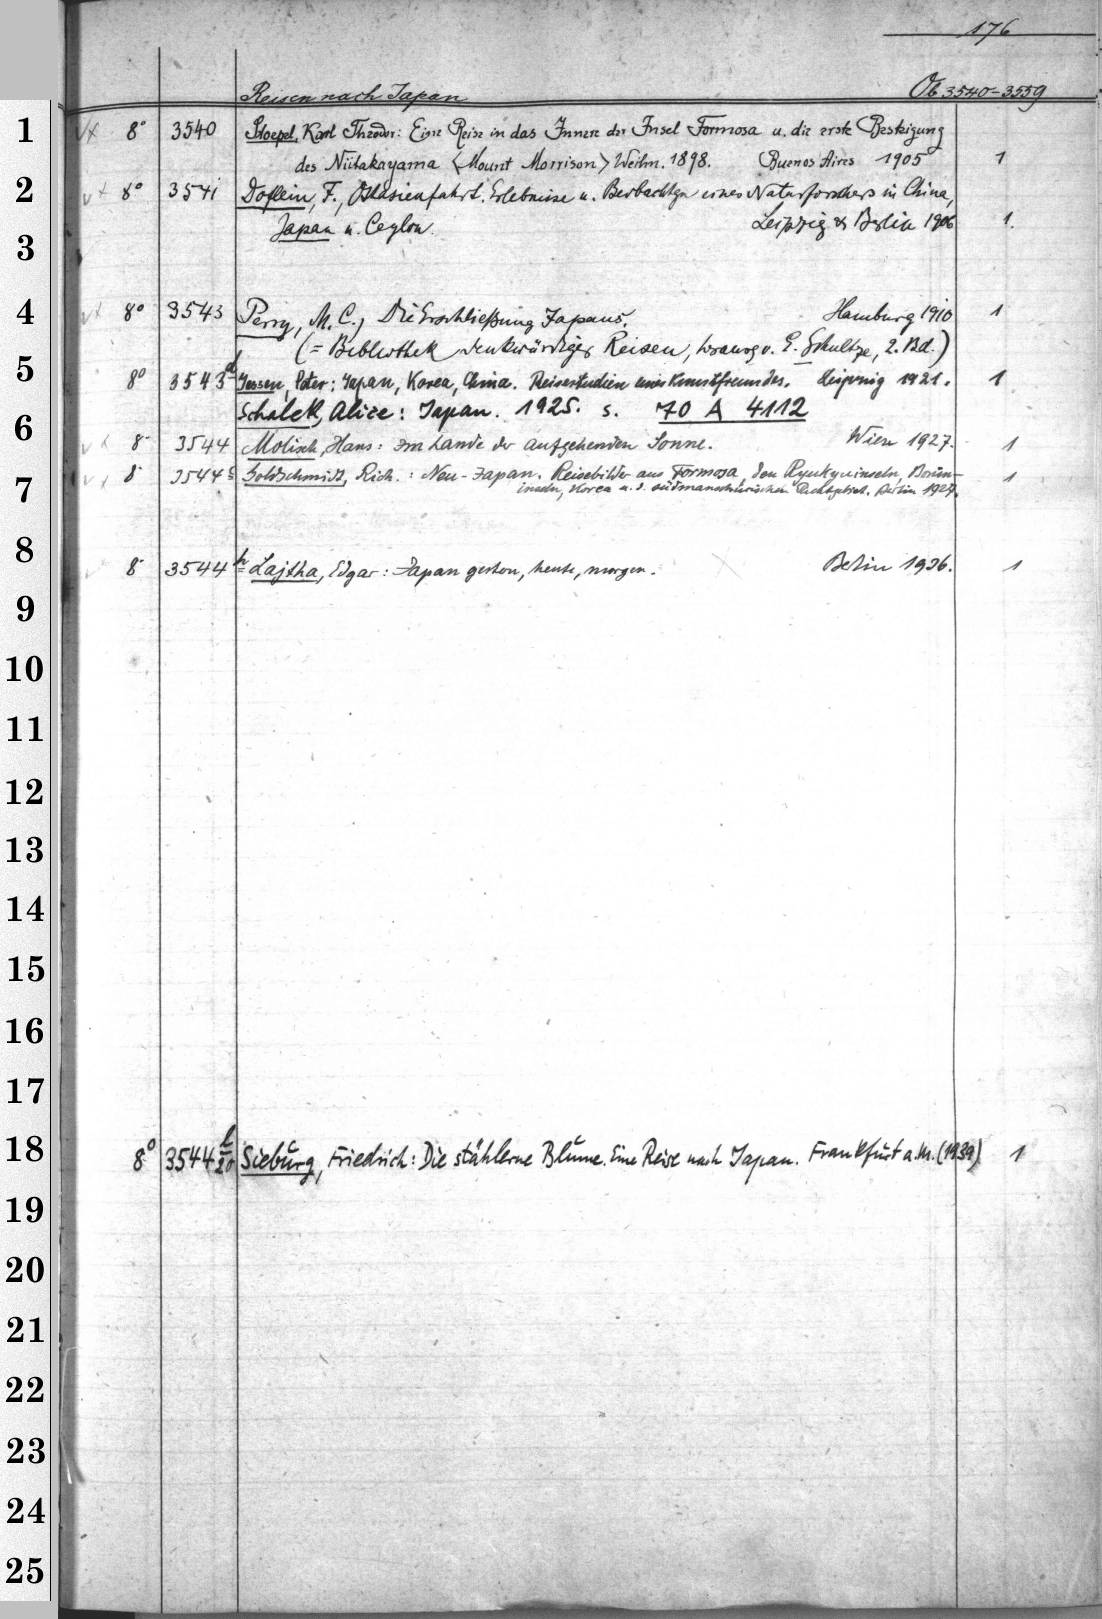 176
Reisen nach Japan Ob 3540-3559
1 8° 3540 Stoepel, Karl Theodor: Eine Reise in das Innere der Insel Formosa u. die erste Besteigung
des Niitakayama <Mount Morrison> Weihn. 1898. Buenos Aires 1905 1
2 8° 3541 Doflein, F., Ostasienfahrt. Erlebnisse u. Beobachtgn eines Naturforschers in China,
Japan u. Ceylon. Leipzig & Berlin 1906 1.
3
4 8° 3543 Perry, M. C., Die Erschließung Japans. Hamburg 1910 1
(= Bibliothek denkwürdiger Reisen, hrausg v. E. Schultze, 2. Bd.)
5 8° 3543 d Jessen, Peter: Japan, Korea, China. Reisestudien eines Kunstfreundes. Leipzig 1921. 1
Schalek, Alice: Japan. 1925. s. 70 A 4112
6 8° 3544 Molisch, Hans: Im Lande der aufgehenden Sonne. Wien 1927. 1
7 8° 3544 Goldschmidt, Rich.: Neu-Japan. Reisebilder aus Formosa, den Ryukyuinseln, Bonin-
inseln, Korea u. d. südmandschurischen Pachtgebiet. Berlin 1927. 1
8 8° 3544 h Lajtha, Edgar: Japan gestern, heute, morgen. Berlin 1936. 1
9
10
11
12
13
14
15
16
17
18 8° 3544 l 20 Sieburg, Friedrich: Die stählerne Blume. Eine Reise nach Japan. Frankfurt a.M. (1939) 1
19
20
21
22
23
24
25